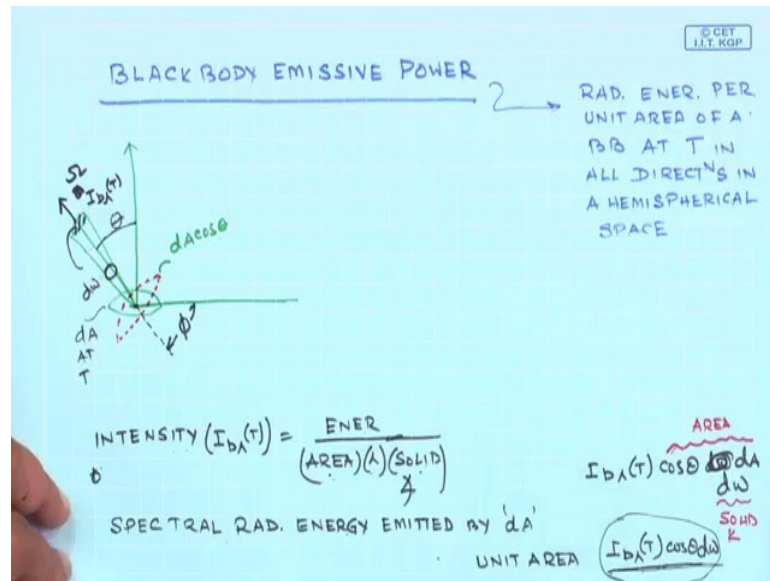 © CET
I.I.T. KGP
BLACKBODY EMISSIVE POWER
RAD. ENER. PER
UNIT AREA OF A
BB AT T IN
ALL DIRECTᴺS IN
A HEMISPHERICAL
SPACE
Ω
I_bλ(T)
θ
dAcosθ
dω
dA
AT
T
φ
INTENSITY (I_bλ(T)) = ENER
(AREA)(λ)(SOLID ∠)
AREA
I_bλ(T) cosθ dA
dω
SOLID
SPECTRAL RAD. ENERGY EMITTED BY 'dA'
UNIT AREA I_bλ(T) cosθdω